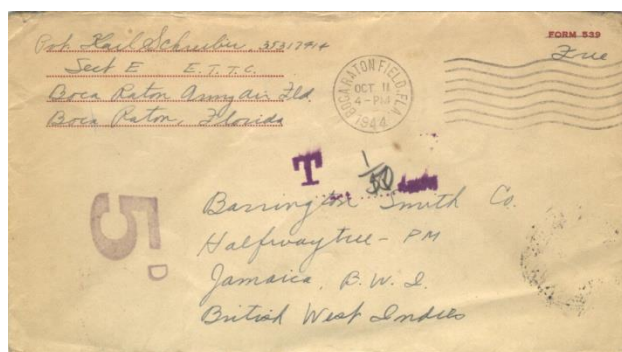 Pvt. Hail Schreiber, 35317914
Sect E E.T.T.C.
Boca Raton Army Air Fld.
Boca Raton, Florida
FORM 539
Free
BOCA RATON FIELD, FLA.
OCT 11
4-PM
1944
T 1/50
Barrington Smith Co.
Halfwaytree - PM
Jamaica, B.W.I.
British West Indies
5D